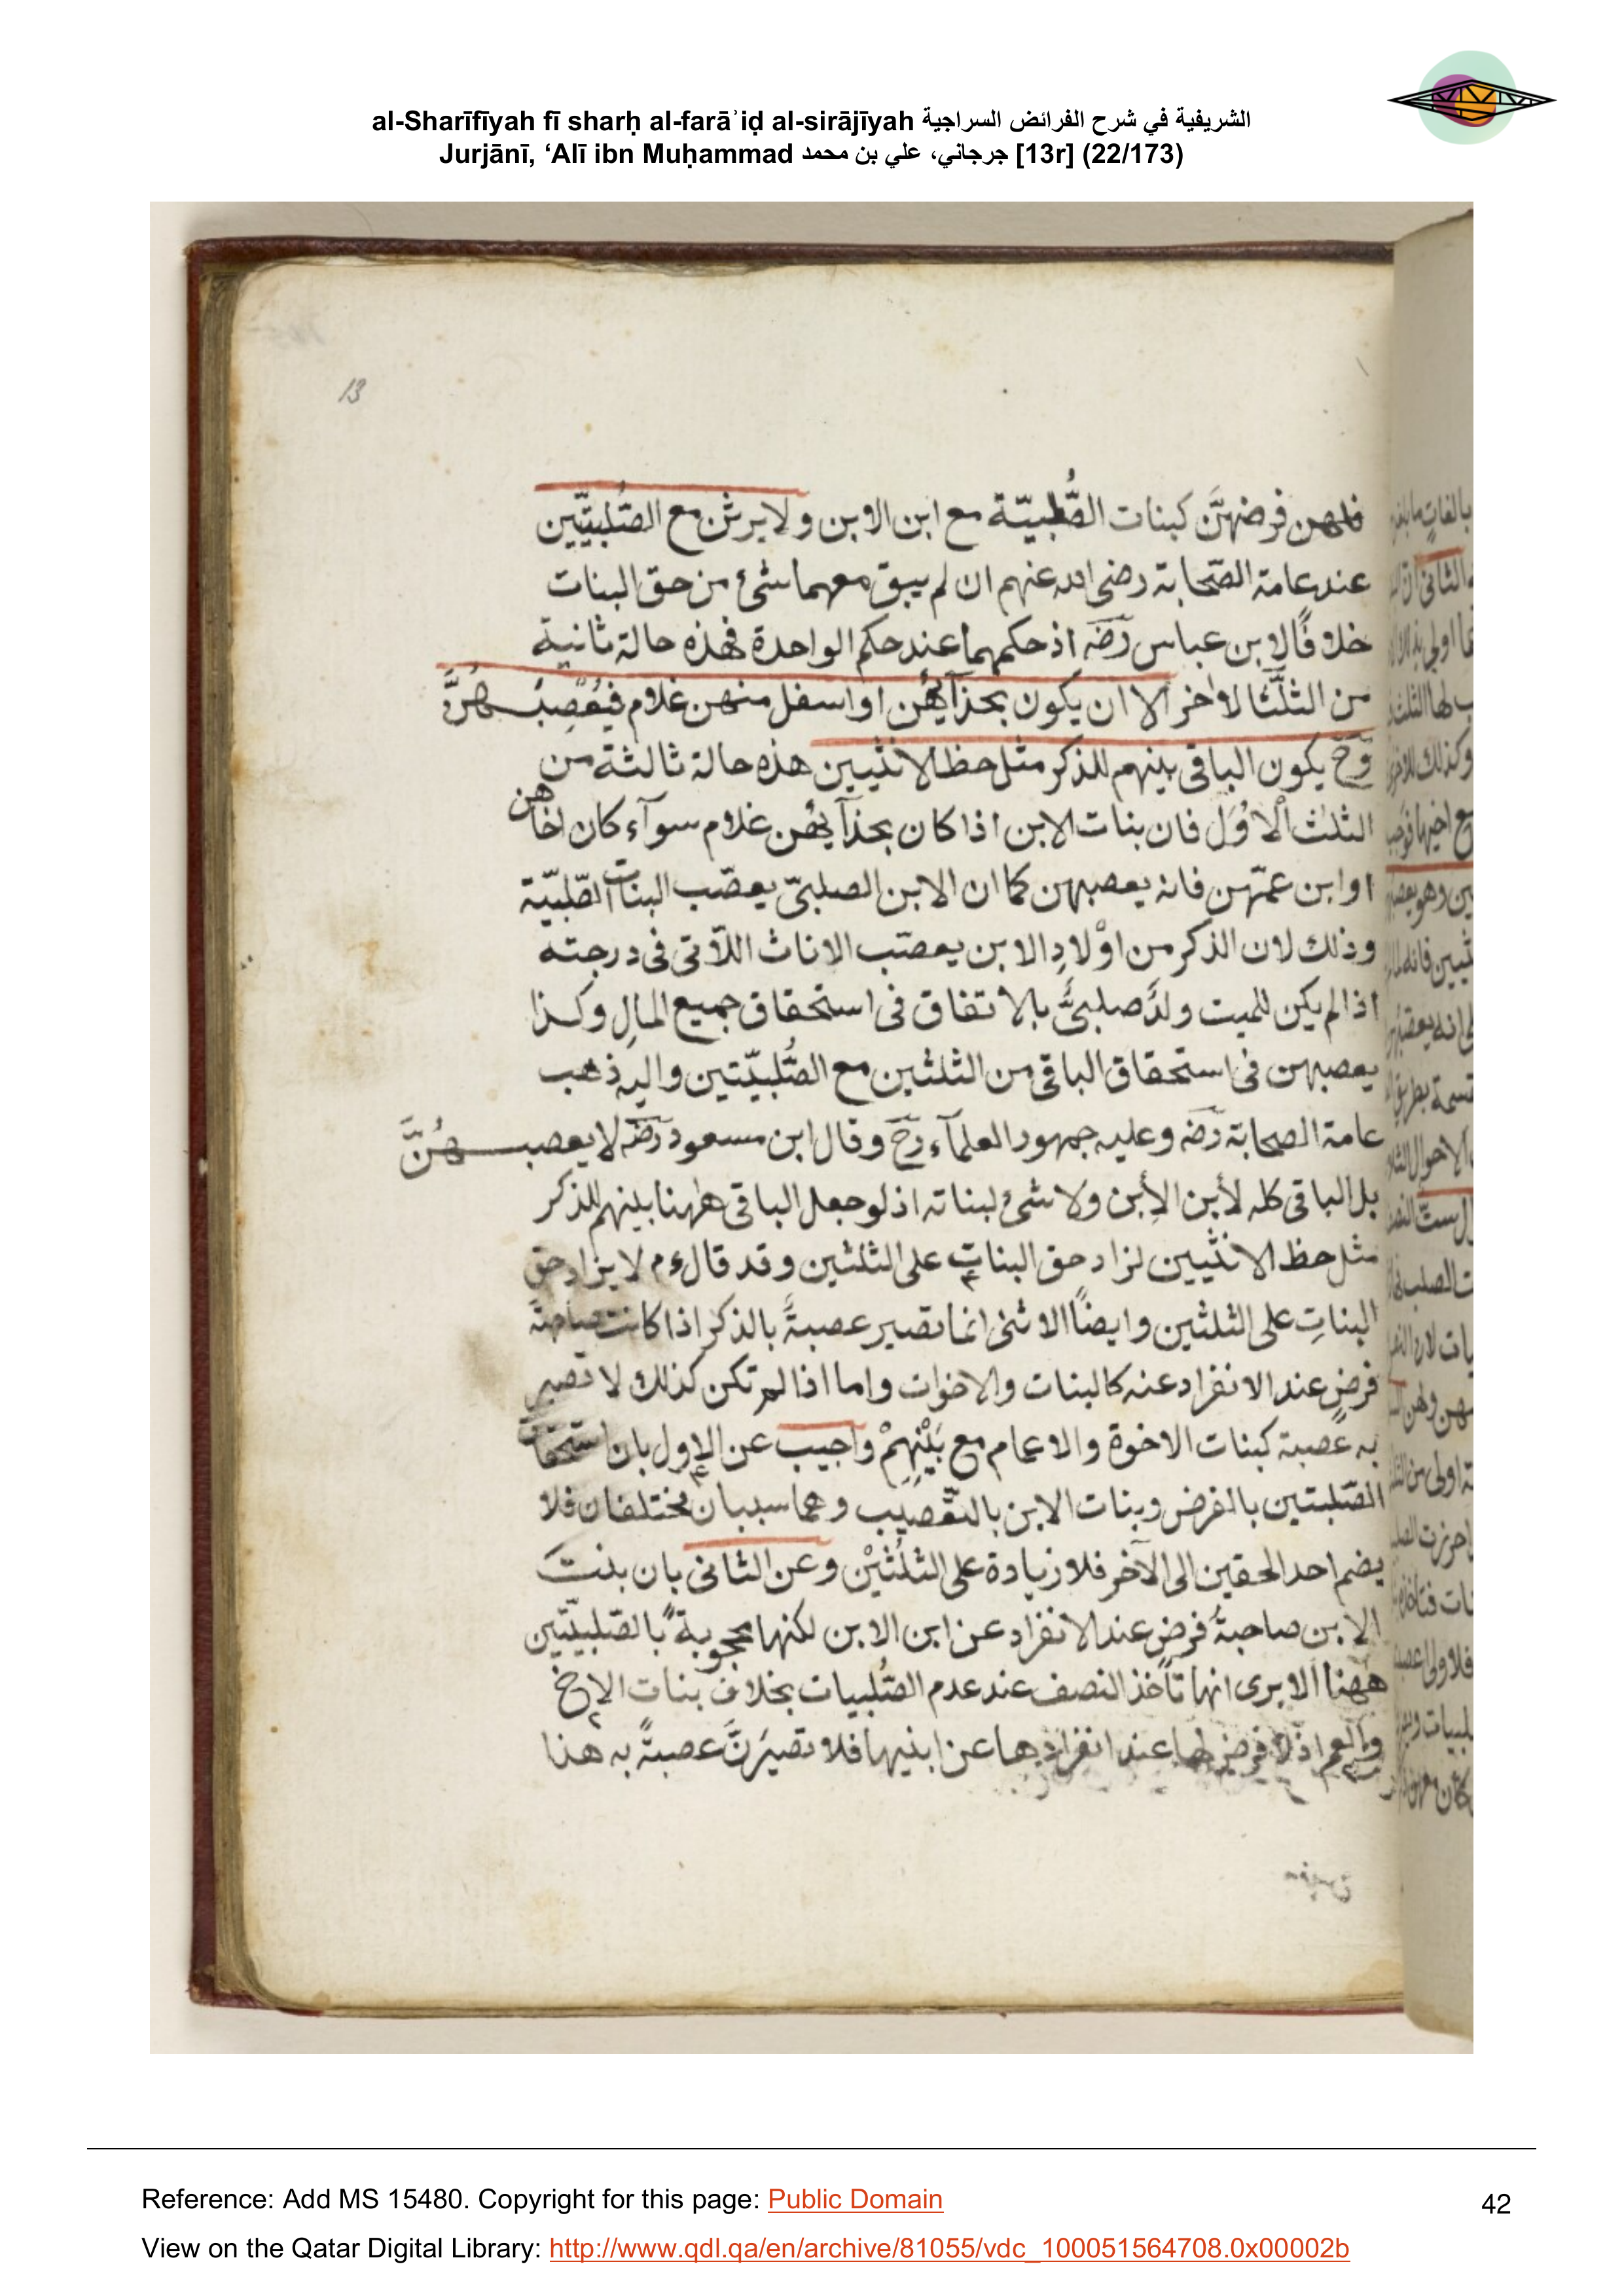 al-Sharīfīyah fī sharḥ al-farāʾiḍ al-sirājīyah الشريفية في شرح الفرائض السراجية
Jurjānī, ‘Alī ibn Muḥammad جرجاني، علي بن محمد [13r] (22/173)
13
فلهن فرضهنَّ كبنات الصُّلبيّة مع ابن الابن ولا يرثن مع الصُّلبيّتين
عند عامة الصّحابة رضى الله عنهم ان لم يبق معهما شئ من حق البنات
خلافًا لابن عباس رضه اذ حكمهما عند حكم الواحدة فهذه حالة ثانية
من الثلث الاواخر الا ان يكون بحذآئهن او اسفل منهن غلام فيُعَصِبُهُنَّ
وح يكون الباقى بينهم للذكر مثل حظ الانثيين هذه حالة ثالثة من
الثلث الاُوَل فان بنات الابن اذا كان بحذآئهن غلام سوآء كان اخاهن
او ابن عمّهن فانه يعصبهن كما ان الابن الصلبىّ يعصّب البنات الصّلبيّة
وذلك لان الذكر من اوْلادِ الابن يعصّب الاناث اللآتى فى درجته
اذا لم يكن للميت ولدٌ صلبىٌّ بالاتفاق فى استحقاق جميع المالِ وكذا
يعصبهن فى استحقاق الباقى من الثلثين مع الصُّلبيّتين واليه ذهب
عامة الصحابة رضه وعليه جمهور العلمآء رح وقال ابن مسعود رضه لا يعصبهُنَّ
بل الباقى كله لأبن الأبن ولا شئ لبناته اذ لو جعل الباقى هٰهنا بينهم للذكر
مثل حظ الانثيين لزاد حق البنات على الثلثين وقد قال ءم لا يزاد حق
البناتِ على الثلثين وايضًا الانثى انما تصير عصبةً بالذكر اذا كانت صاحبة
فرضٍ عند الانفراد عنه كالبنات والاخوات واما اذا لم تكن كذلك لا تصير
به عصبة كبنات الاخوة والاعمام مع بَنِيْهِمْ واجيب عن الاول بان استحقاق
الصّلبتين بالفرض وبنات الابن بالتّعصيب وهما سببان مختلفان فلا
يضم احد الحقين الى الآخر فلا زيادة على الثلُثيْن وعن الثانى بان بنت
الابن صاحبةُ فرضٍ عند الانفراد عن ابن الابن لكنها محجوبةٌ بالصّلبيّتين
ههنا الا يرى انها تأخذ النصف عند عدم الصُّلبيات بخلاف بنات الاخ
والعم اذ لا فرض لها عند انفرادها عن ابنيها فلا تصيرَنَّ عصبةً به هذا
Reference: Add MS 15480. Copyright for this page: Public Domain
42
View on the Qatar Digital Library: http://www.qdl.qa/en/archive/81055/vdc_100051564708.0x00002b